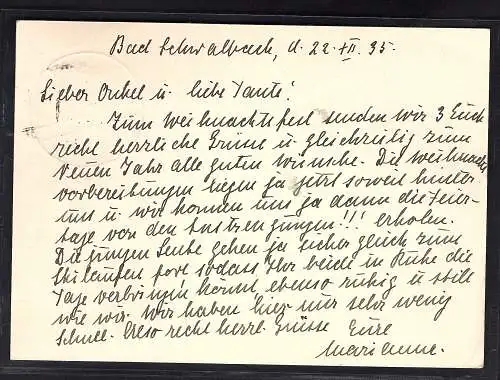 Bad Schwalbach, d. 22. XII. 35.
Lieber Onkel u. liebe Tante!
Zum Weihnachtsfest senden wir 3 Euch
recht herzliche Grüsse u. gleichzeitig zum
neuen Jahr alle guten Wünsche. Die Weihnachts
vorbereitungen liegen ja jetzt soweit hinter
uns u. wir können uns ja dann die Feier-
tage von den Anstrengungen!!! erholen.
Die jungen Leute gehen ja sicher gleich zum
Skilaufen fort sodass Ihr beide in Ruhe die
Tage verbringen könnt ebenso ruhig u. still
wie wir. Wir haben hier nur sehr wenig
Schnee. Also recht herzl. Grüsse Eure
Marianne.